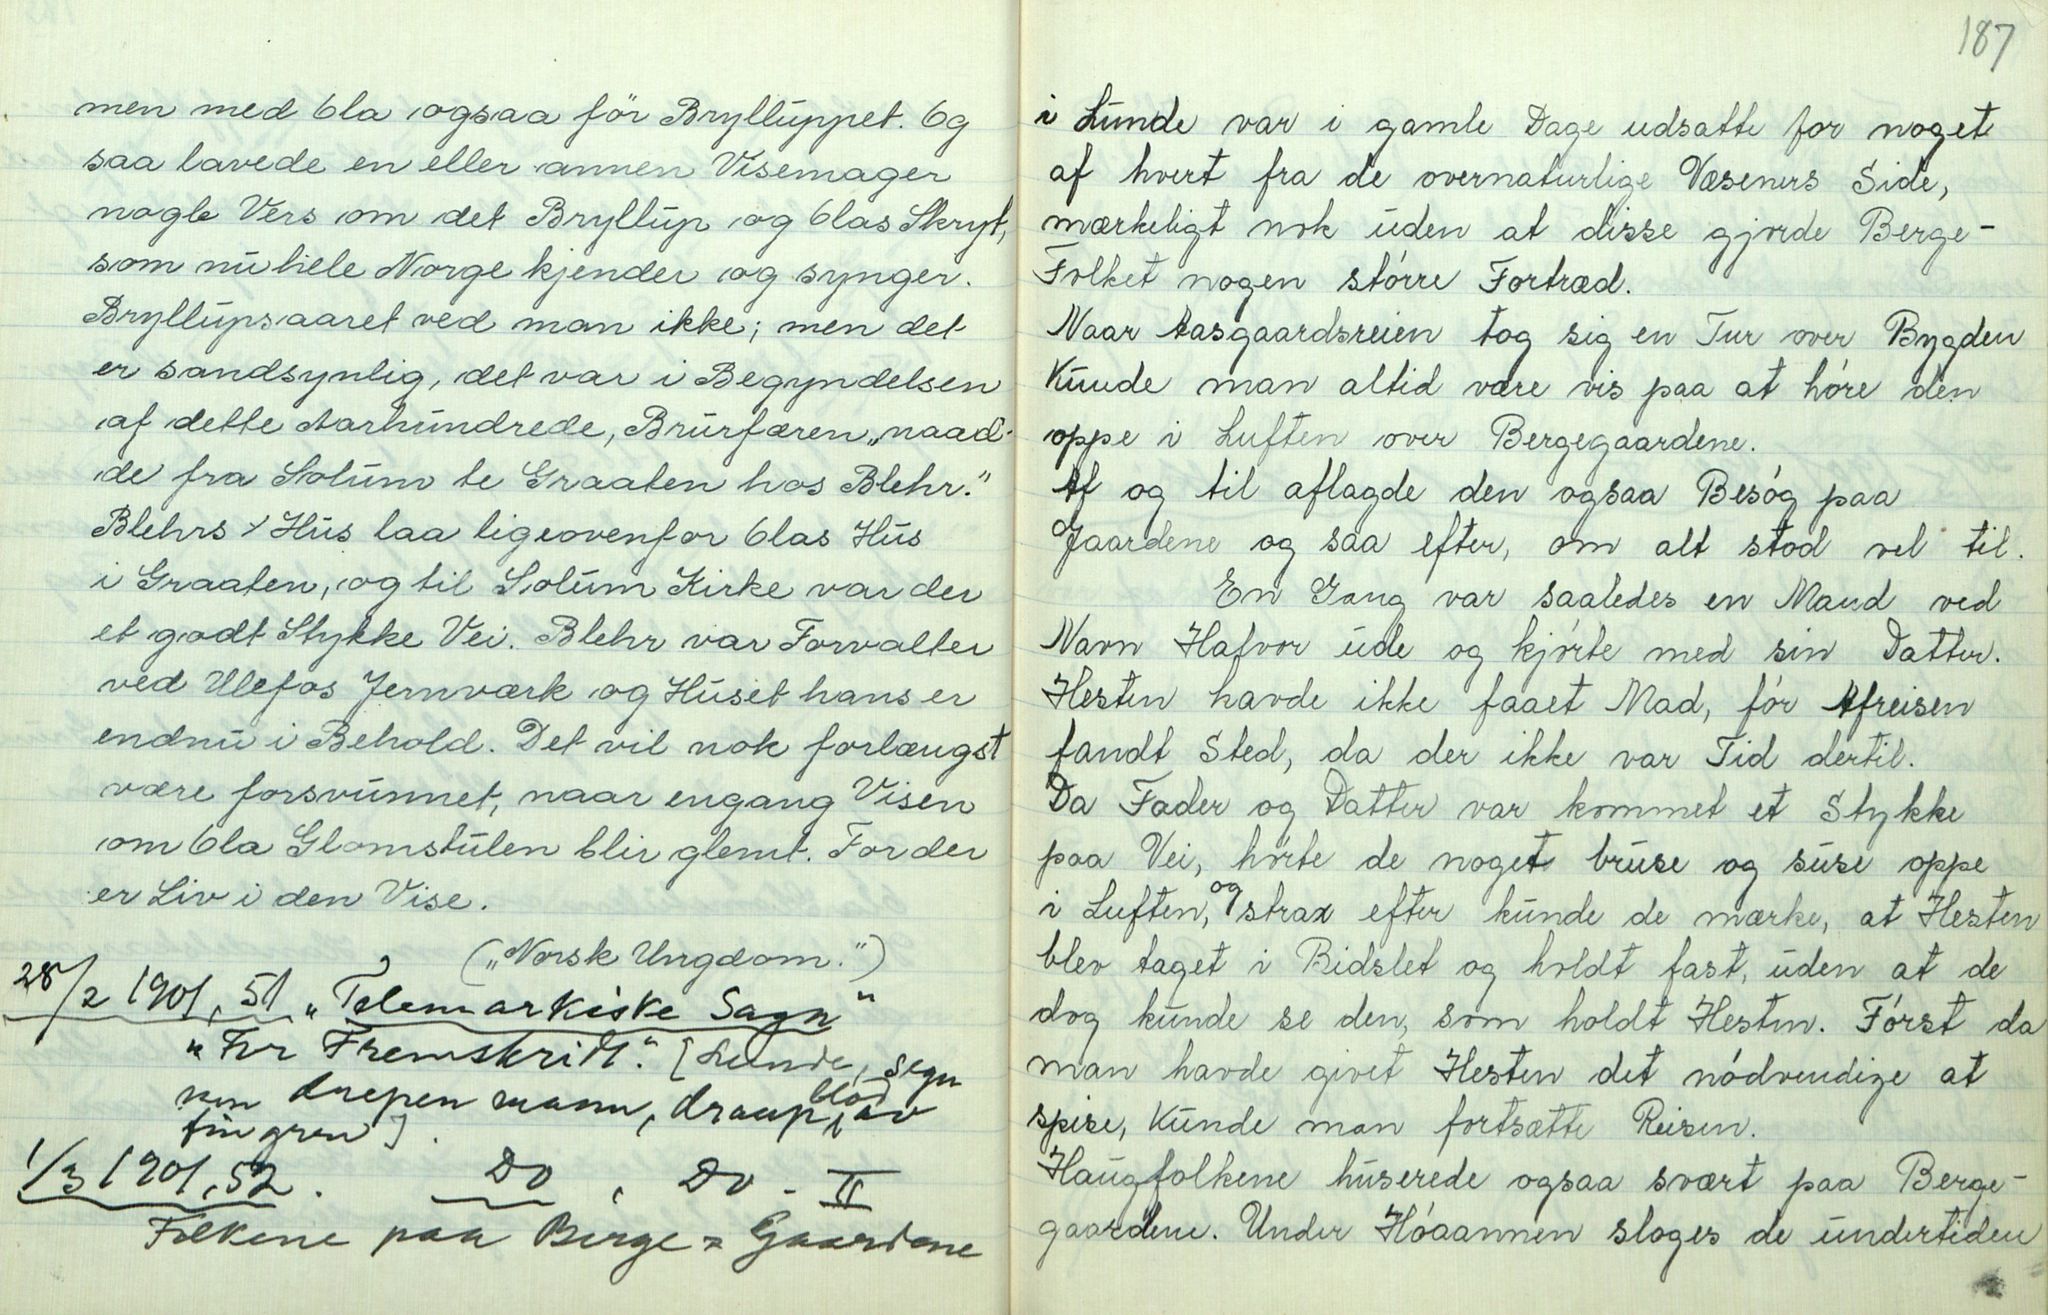 men med Ola ogsaa för Brylluppet. Og
saa lavede en eller annen Visemager
nogle Vers om det Bryllup og Olas Skryt,
som nu hele Norge kjender og synger.
Bryllupsaaret ved man ikke; men det
er sandsynlig, det var i Begyndelsen
af dette Aarhundrede, Brurfæren „naad-
de fra Solum te Graaten hos Blehr."
Blehrs Hus laa ligeovenfor Olas Hus
i Graaten, og til Solum Kirke var der
et godt Stykke Vei. Blehr var Forvalter
ved Ulefos Jernværk og Huset hans er
endnu i Behold. Det vil nok forlængst
være forsvunnet, naar engang Visen
om Ola Glomstulen blir glemt. For der
er Liv i den Vise.
(„Norsk Ungdom.")
28/2 1901, 51 „Telemarkiske Sagn"
„For Fremskridt." [Lunde, segn
um drepen mann, draup blod av
fingren].
1/3 1901, 52. Do, Do. II
Folkene paa Berge-Gaardene
187
i Lunde var i gamle Dage udsatte for noget
af hvert fra de overnaturlige Væseners Side,
mærkeligt nok uden at disse gjorde Berge-
Folket nogen större Fortræd.
Naar Aasgaardsreien tog sig en Tur over Bygden
kunde man altid være vis paa at höre den
oppe i Luften over Bergegaardene.
Af og til aflagde den ogsaa Besög paa
Gaardene og saa efter, om alt stod vel til.
En Gang var saaledes en Mand ved
Navn Halvor ude og kjörte med sin Datter.
Hesten havde ikke faaet Mad, för Afreisen
fandt Sted, da der ikke var Tid dertil.
Da Fader og Datter var kommet et Stykke
paa Vei, hörte de noget bruse og suse oppe
i Luften, og strax efter kunde de mærke, at Hesten
blev taget i Bidslet og holdt fast, uden at de
dog kunde se den, som holdt Hesten. Först da
man havde givet Hesten det nödvendige at
spise, kunde man fortsætte Reisen.
Haugfolkene huserede ogsaa svært paa Berge-
gaardene. Under Höaannen sloges de undertiden